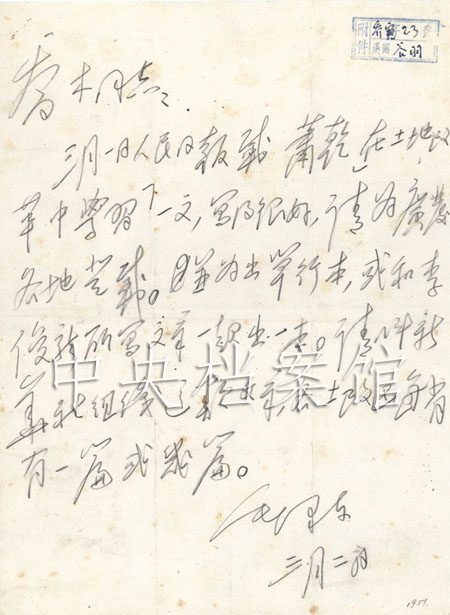 附件
乔木同志：
三月一日人民日报载萧乾「在土地改
革中学習」一文，写得很好，请为廣發
各地登载。並为出單行本，或和李
俊龍所写文章一起出一本。请叫新
華社组织这类文章，各土改區每省
有一篇或几篇。
毛泽东
三月二日
1951
中央档案馆